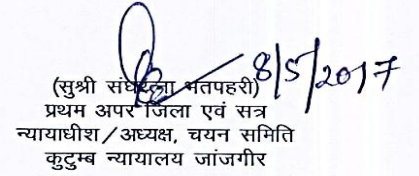 8/5/2017
(सुश्री संघरत्ना भतपहरी)
प्रथम अपर जिला एवं सत्र
न्यायाधीश/अध्यक्ष, चयन समिति
कुटुम्ब न्यायालय जांजगीर